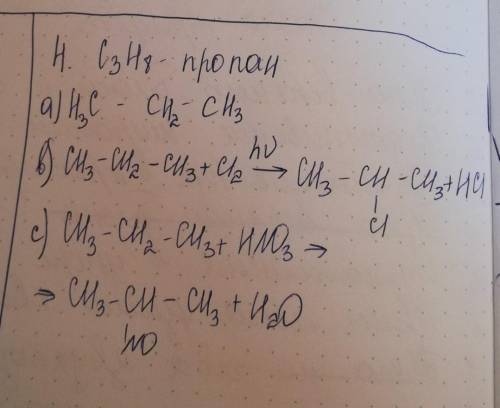 Н. C3H8 - пропан
а) H3C - CH2 - CH3
б) CH3 - CH2 - CH3 + Cl2 hν → CH3 - CH - CH3 + HCl
Cl
с) CH3 - CH2 - CH3 + HNO3 →
→ CH3 - CH - CH3 + H2O
NO